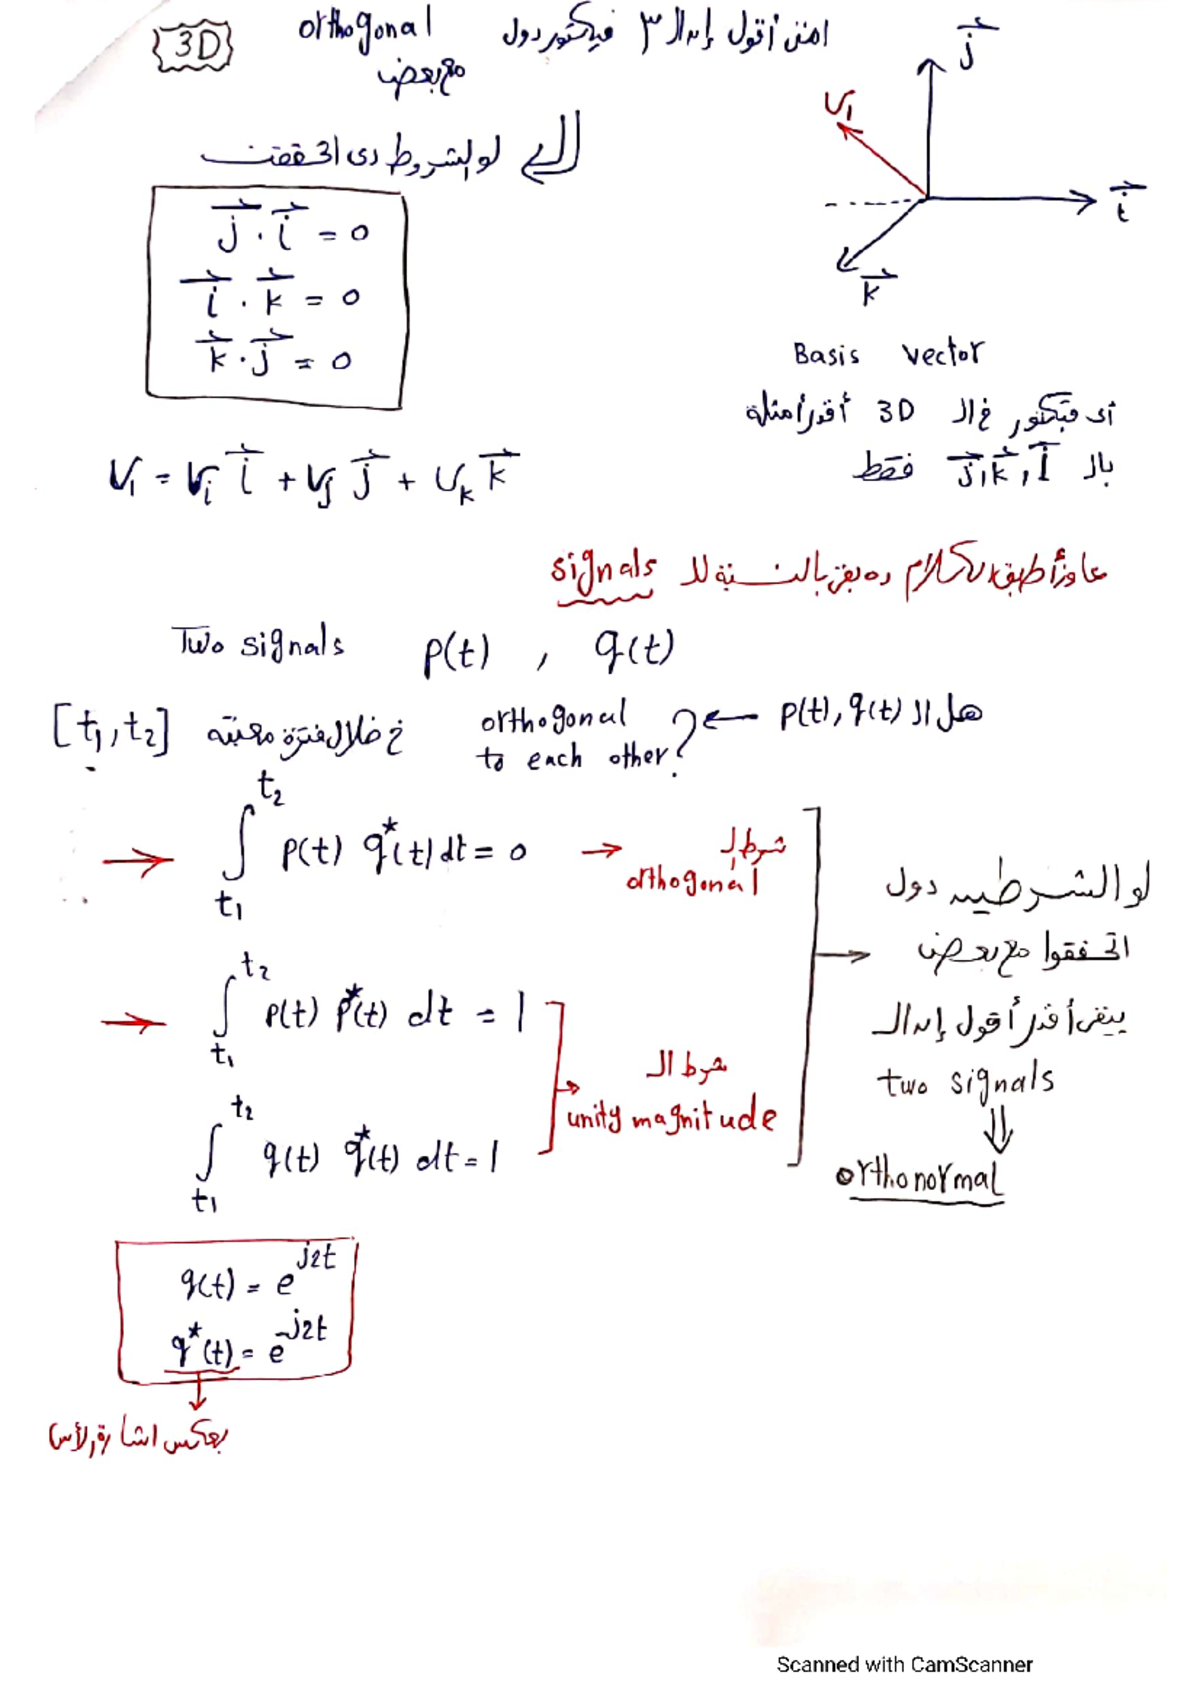 3D
امتى أقول إن الـ ٣ فيكتور دول orthogonal
مع بعض
لو الشروط دى اتحققت
j · i = 0
i · k = 0
k · j = 0
j
V₁
i
k
Basis vector
أى فيكتور فى الـ 3D أقدر أمثله
بالـ i, k, j فقط
V₁ = Vᵢ i + Vⱼ j + Vₖ k
عاوز أطبق الكلام ده بقى بالنسبة للـ signals
Two signals p(t) , q(t)
هل الـ p(t), q(t) ← orthogonal to each other? فى خلال فترة معينه [t₁, t₂]
→ ∫_{t₁}^{t₂} p(t) q*(t) dt = 0 → شرط الـ orthogonal
→ ∫_{t₁}^{t₂} p(t) p*(t) dt = 1
∫_{t₁}^{t₂} q(t) q*(t) dt = 1
→ شرط الـ
unity magnitude
→ لو الشرطين دول
اتحققوا مع بعض
يبقى أقدر أقول إن الـ
two signals
⇓
orthonormal
q(t) = e^{j2t}
q*(t) = e^{-j2t}
بعكس اشارة الأس
Scanned with CamScanner